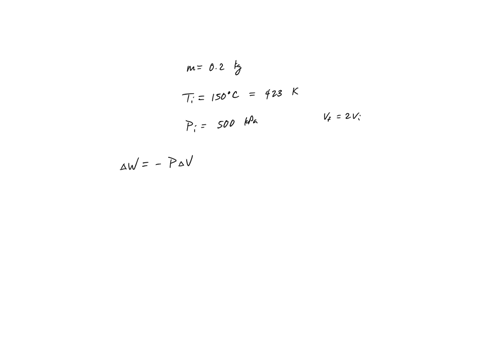 m = 0.2 kg
Ti = 150°C = 423 K
Pi = 500 kPa
Vf = 2Vi
ΔW = - PΔV